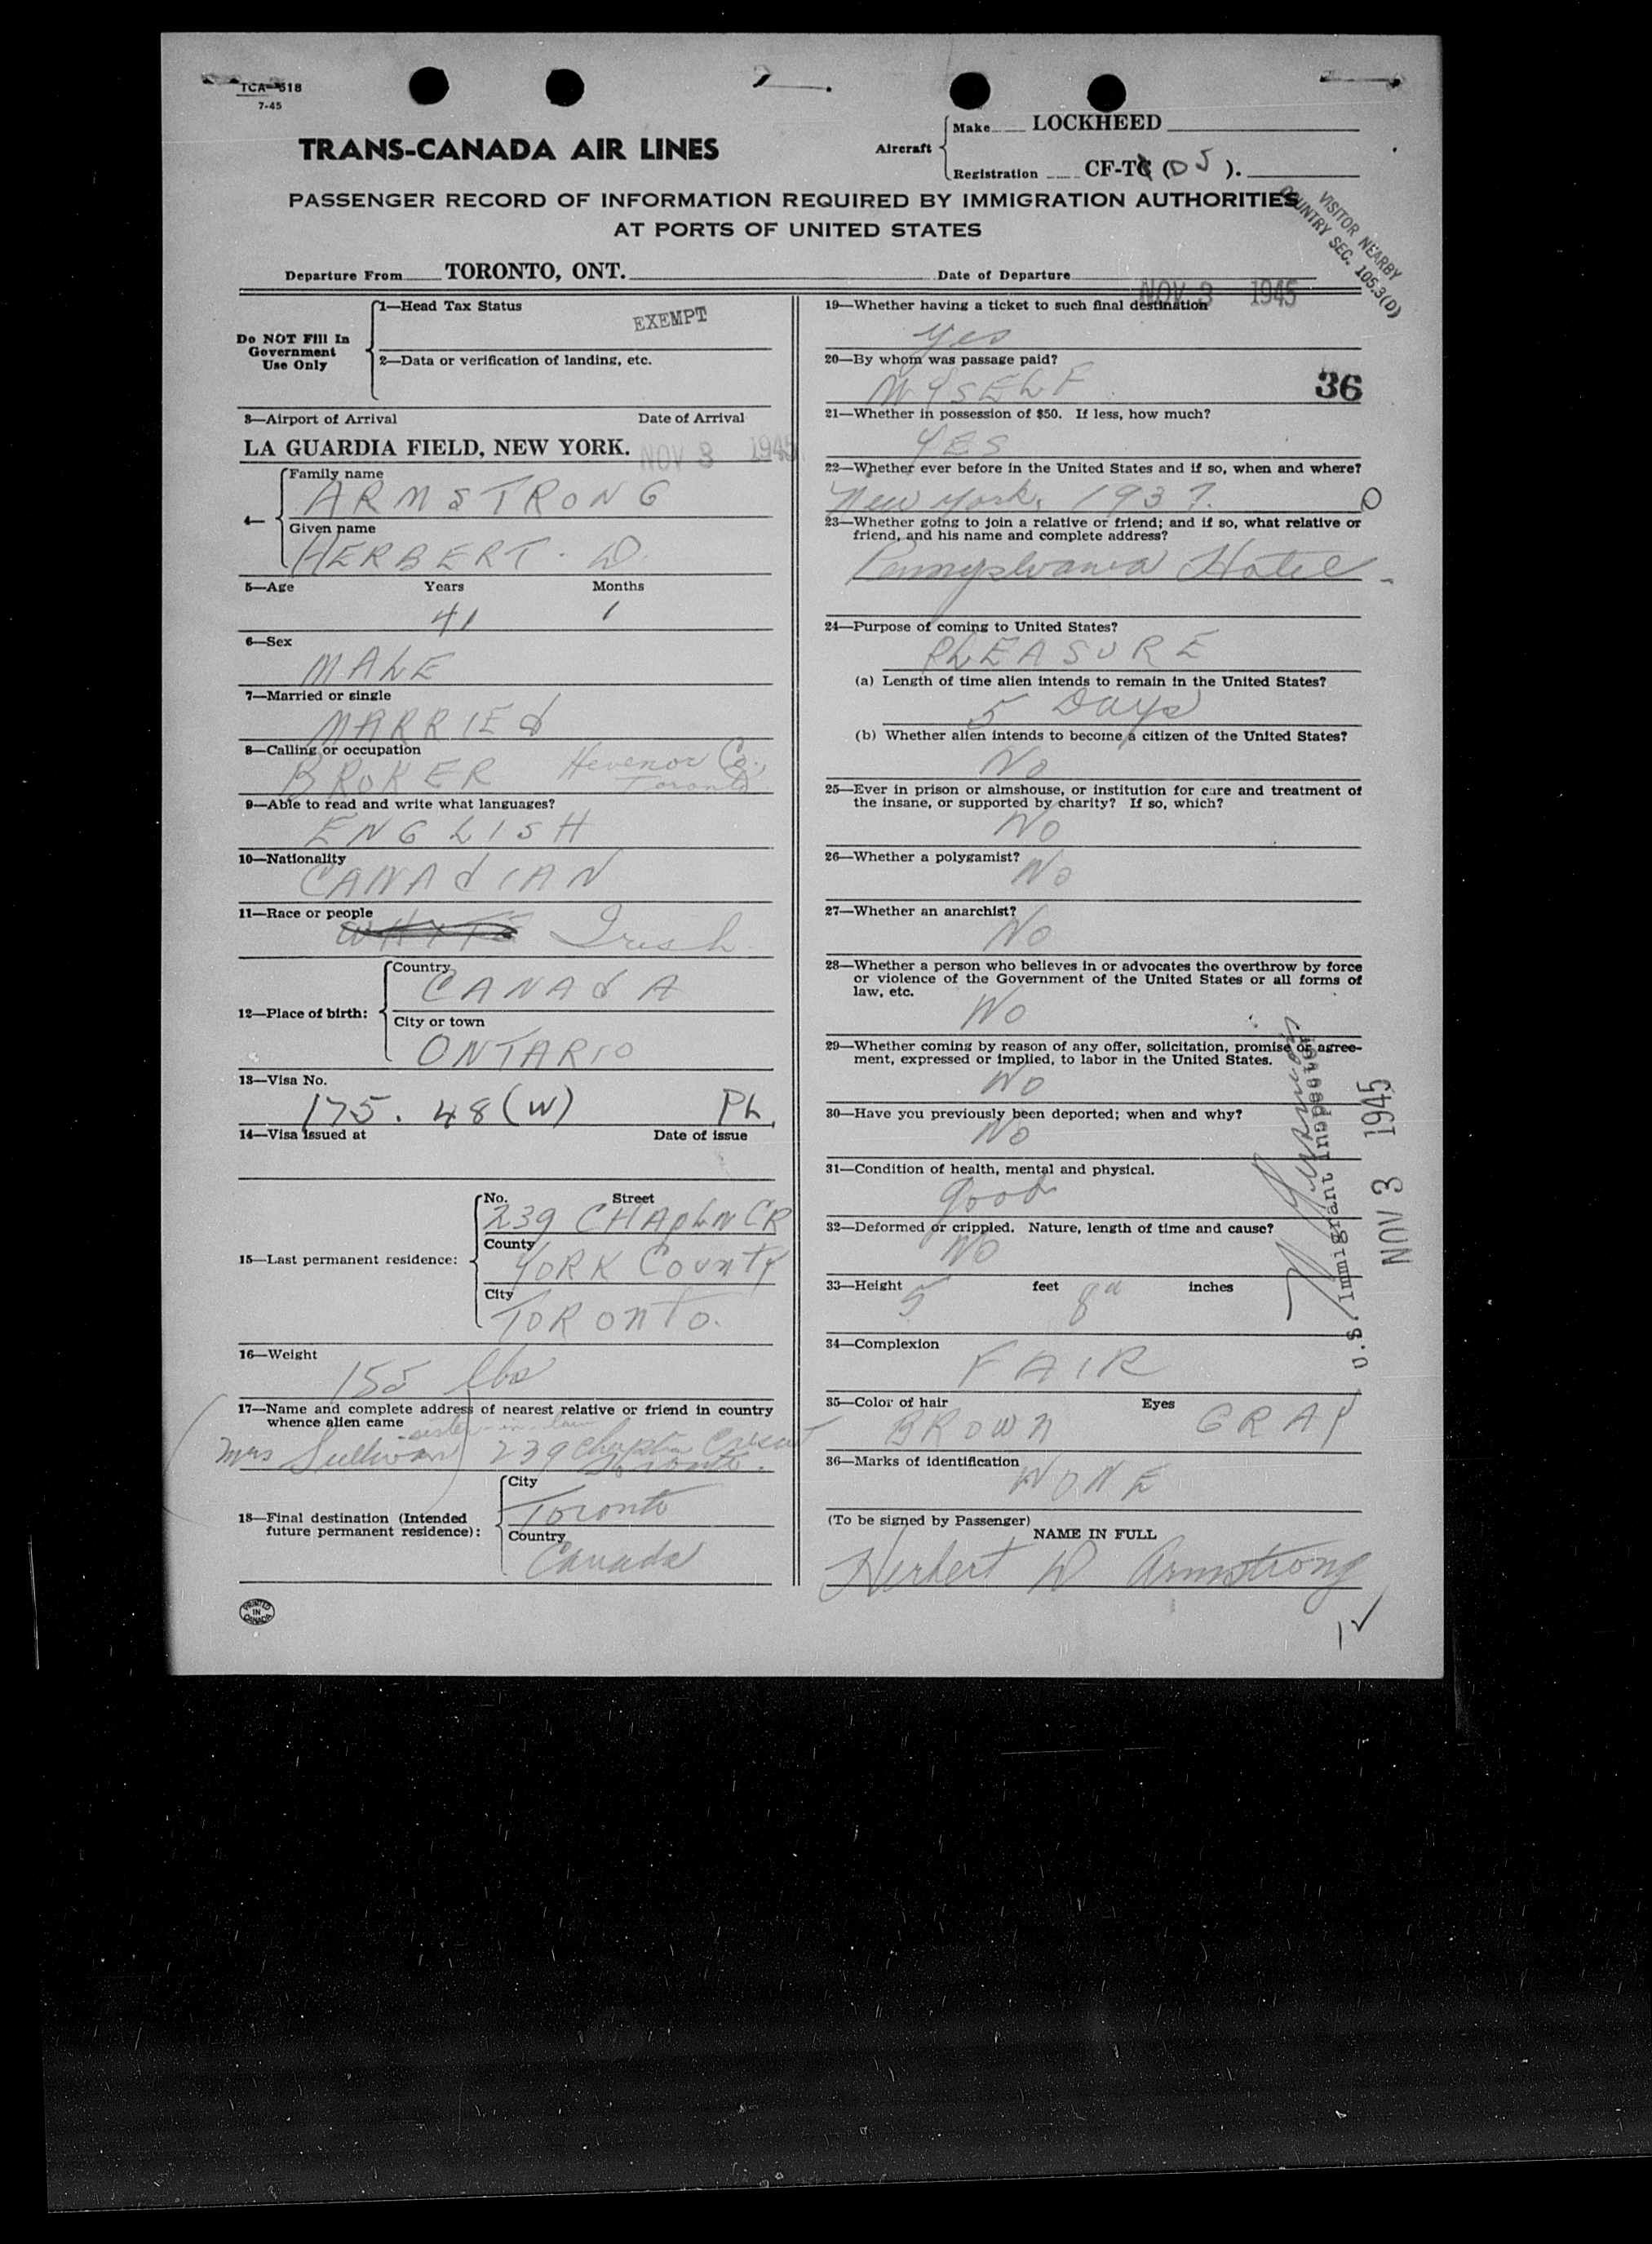 TCA-518
7-45
TRANS-CANADA AIR LINES
Aircraft
Make LOCKHEED
Registration CF-TC (DJ).
PASSENGER RECORD OF INFORMATION REQUIRED BY IMMIGRATION AUTHORITIES
AT PORTS OF UNITED STATES
VISITOR NEARBY
COUNTRY SEC. 105.3(D)
Departure From TORONTO, ONT. Date of Departure
NOV 3 1945
Do NOT Fill In
Government
Use Only
1—Head Tax Status
EXEMPT
2—Data or verification of landing, etc.
3—Airport of Arrival Date of Arrival
LA GUARDIA FIELD, NEW YORK. NOV 3 1945
4—
Family name
ARMSTRONG
Given name
HERBERT. D.
5—Age Years Months
41 1
6—Sex
MALE
7—Married or single
MARRIED
8—Calling or occupation
BROKER Hevenor Co.,
Toronto
9—Able to read and write what languages?
ENGLISH
10—Nationality
CANADIAN
11—Race or people
WHITE Irish
12—Place of birth:
Country
CANADA
City or town
ONTARIO
13—Visa No.
175.48(W) Ph
14—Visa issued at Date of issue
15—Last permanent residence:
No. Street
239 CHAPLN CR
County
YORK COUNTY
City
TORONTO.
16—Weight
155 lbs
17—Name and complete address of nearest relative or friend in country
whence alien came
sister-in-law
Mrs Sullivan) 239 Chaplin Crescent
Toronto.
18—Final destination (Intended
future permanent residence):
City
Toronto
Country
Canada
PRINTED
IN
CANADA
19—Whether having a ticket to such final destination
yes
20—By whom was passage paid?
MYSELF
36
21—Whether in possession of $50. If less, how much?
YES
22—Whether ever before in the United States and if so, when and where?
New York, 1937.
23—Whether going to join a relative or friend; and if so, what relative or
friend, and his name and complete address?
Pennyslvania Hotel
24—Purpose of coming to United States?
PLEASURE
(a) Length of time alien intends to remain in the United States?
5 Days
(b) Whether alien intends to become a citizen of the United States?
No
25—Ever in prison or almshouse, or institution for care and treatment of
the insane, or supported by charity? If so, which?
No
26—Whether a polygamist?
No
27—Whether an anarchist?
No
28—Whether a person who believes in or advocates the overthrow by force
or violence of the Government of the United States or all forms of
law, etc.
No
29—Whether coming by reason of any offer, solicitation, promise or agree-
ment, expressed or implied, to labor in the United States.
No
30—Have you previously been deported; when and why?
No
31—Condition of health, mental and physical.
good
32—Deformed or crippled. Nature, length of time and cause?
NO
33—Height 5 feet 8" inches
34—Complexion
FAIR
35—Color of hair Eyes
BROWN GRAY
36—Marks of identification
NONE
(To be signed by Passenger)
NAME IN FULL
Herbert D Armstrong
U.S. Immigrant Inspector
NOV 3 1945